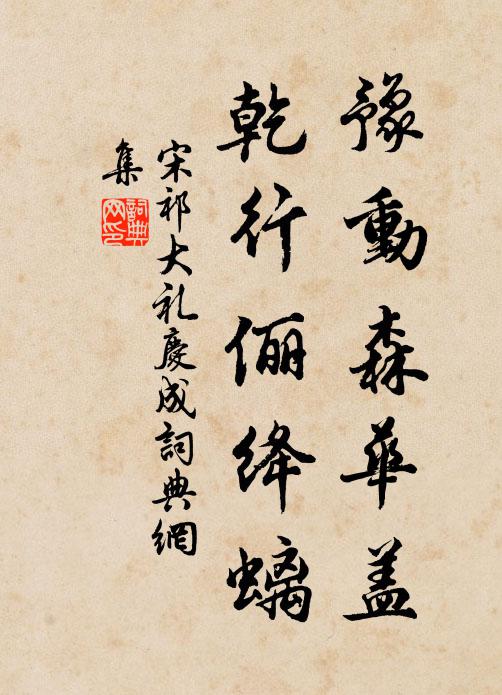 豫動森華盖
乾行儷绛螭
宋祁大礼慶成詞典網
集
詞典
网印